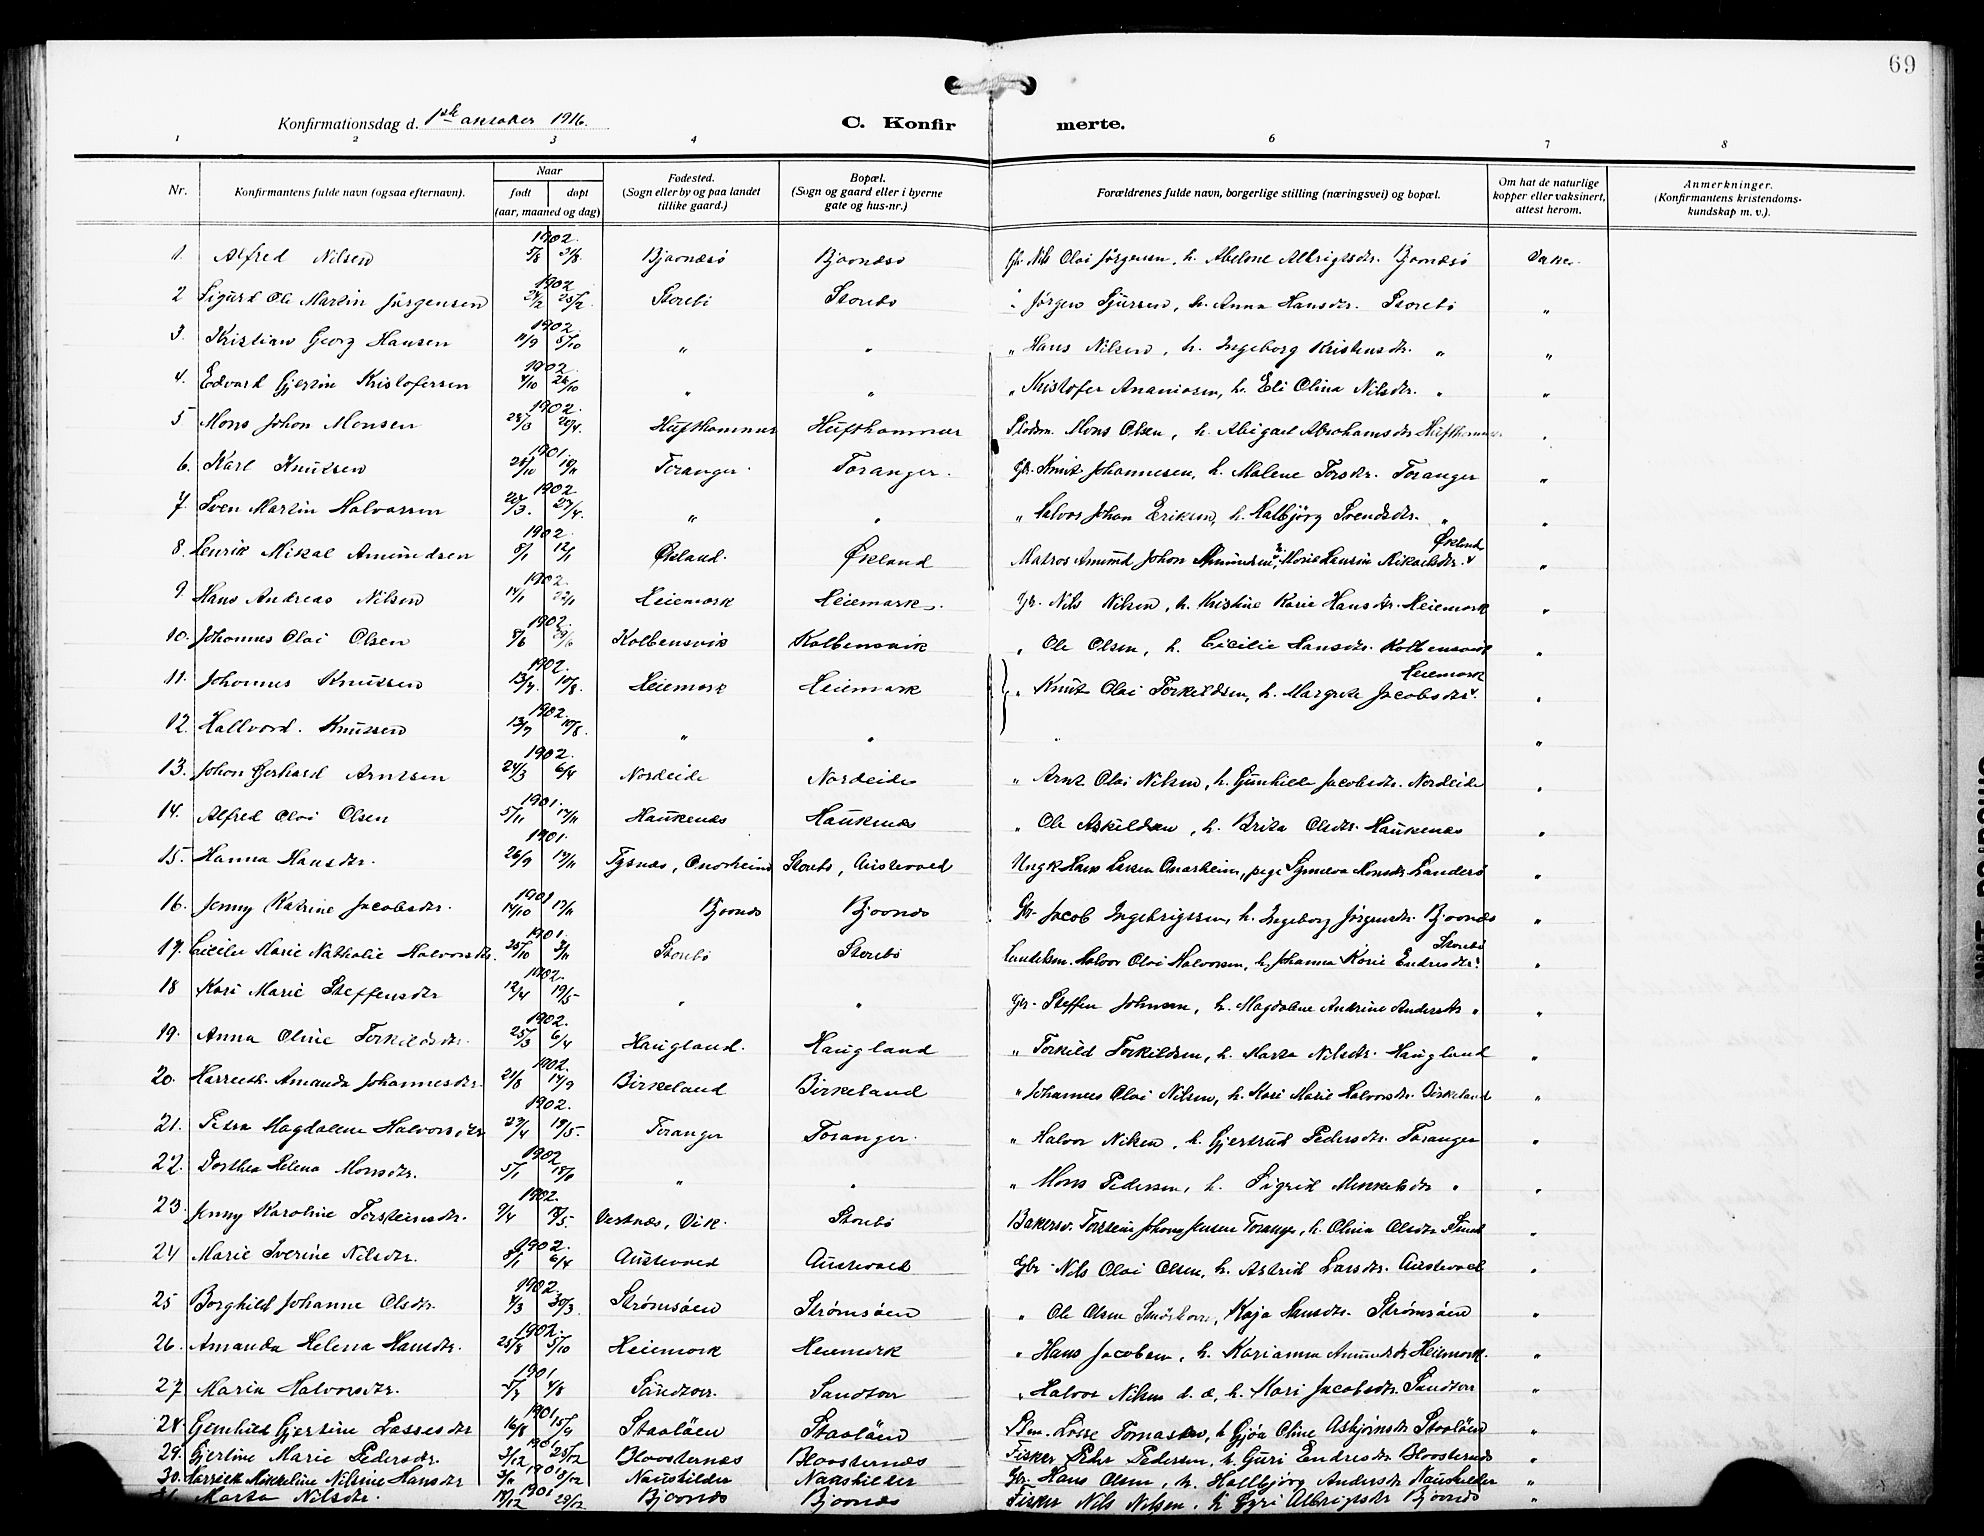 69
Konfirmationsdag d. 1ste oktober 1916.
C. Konfirmerte.
1 2 3 4 5 6 7 8
Nr. Konfirmantens fulde navn (ogsaa efternavn). Naar født døpt (aar, maaned og dag) Fødested. (Sogn eller by og paa landet tillike gaard.) Bopæl. (Sogn og gaard eller i byerne gate og hus-nr.) Forældrenes fulde navn, borgerlige stilling (næringsvei) og bopæl. Om hat de naturlige kopper eller vaksinert, attest herom. Anmerkninger. (Konfirmantens kristendoms-kundskap m. v.).
1. Alfred Nilsen 1902 5/8 31/8 Bjornesø Bjornesø Gbr. Nils Olai Jørgensen, h. Abelone Albrigtsdtr. Bjornesø Vakc.
2 Sigurd Ole Martin Jørgensen 1902 Storebø Storebø " Jørgen Sjursen, h. Anna Hansdtr. Storebø "
3. Kristian Georg Hansen 1902. 11/9 5/10 " " " Hans Nilsen, h. Ingeborg Kristensdtr. " "
4. Edvard Gjertin Kristofersen 1902. 4/10 26/10 " " " Kristofer Ananiasen, h. Eli Olina Nilsdtr. " "
5 Mons Johan Monsen 1902. 23/3 20/4. Hufthammer Hufthammer Mons Olsen, h. Abigael Abrahamsdtr Hufthammer "
6. Karl Knutsen 1901. Toranger. Toranger. Gbr. Knut Johannesen, h. Malene Torsdtr. Toranger "
7. Sven Martin Halvorsen 1902 27/4. " " " Halvor Johan Eriksen, h. Halbjørg Svendsdtr. " "
8. Henrik Mikal Amundsen 1902. 8/1 12/1 Økland. Økland Matros Amund Johan Amundsen, h. Marie Hansin Mikaelsdtr. Økland "
9. Hans Andreas Nilsen 1902. 14/1 22/1 Heiemark Heiemark. Gbr. Nils Nilsen, h. Kristine Karie Hansdtr. Heiemark "
10. Johannes Olai Olsen 1902. 8/6 29/6 Kolbensvik Kolbensvik " Ole Olsen, h. Cicilie Hansdtr. Kolbensvik "
11. Johannes Knutsen 1902. 13/7. 10/8. Heiemark Heiemark " Knut Olai Torkildsen, h. Margrete Jacobsdtr. Heiemark "
12. Hallvard. Knutsen 1902. 13/7 10/8. " " " "
13. Johan Gerhard Arntsen 1902. 24/3 6/4 Nordeide Nordeide " Arnt Olai Nilsen, h. Gunhilde Jacobsdtr. Nordeide "
14. Alfred Olai Olsen 1901. 5/11 17/11 Haukenæs Haukenæs " Ole Askildsen, h. Brita Olsdtr. Haukenæs "
15. Hanna Hansdtr. 1901. 26/9 17/11 Tysnæs, Onarheim Storebø, Austevold Ungk Hans Larsen Onarheim, pige Synneva Monsdtr. "
16. Jenny Katrine Jacobsdtr. 1901 14/10 17/11 Bjornæs Bjornæs Gbr. Jacob Ingebrigtsen, h. Ingeborg Jørgensdtr. Bjornæs "
17. Cicilie Marie Nathalie Halvorsdtr. 1901. 25/10 3/11 Storebø Storebø Landhsm. Halvor Olai Halvorsen, h. Johanna Karie Endresdtr. Storebø "
18 Kari Marie Steffensdtr 1902. 12/4 19/5- " " Gbr. Steffen Johnsen, h. Magdalene Andrine Andersdtr " "
19. Anna Oline Torkildsdtr. 1902. 25/3 6/4 Haugland. Haugland " Torkild Torkildsen, h. Marta Nilsdtr. Haugland "
20. Amanda Johannesdtr. 1902. 21/8 14/9 Birkeland Birkeland " Johannes Olai Nilsen, h. Mari Marie Halvorsdtr. Birkeland "
21. Petra Magdalene Halvorsdtr 1902. 27/4 19/5. Toranger Toranger. " Halvor Nilsen, h. Gjertrud Pedersdtr. Toranger "
22. Dorthea Helena Monsdtr. 1902 5/1 " " " Mons Pedersen, h. Sigrid Mikkelsdtr " "
23. Jenny Karoline Torsteinsdtr. 1902. 9/4 18/5. Vestnæs, Vik. Storebø Torstein Johan Jensen Toranger, h. Olina Olsdtr "
24 Marie Sverine Nilsdtr. 1902. 8/1 6/4 Austevold Austevold Gbr. Nils Olai Olsen, h. Astrid Larsdtr. Austevold "
25 Borghild Johanne Olsdtr. 1902. 4/3 30/3. Strømsøen Strømsøen " Ole Olsen, Kaja Hansdtr. Strømsøen "
26. Amanda Helena Hansdtr. 1902. 25/8 5/10 Heiemork Heiemork " Hans Jacobsen, h. Karianna Amundsdtr Heiemork. "
27 Maria Halvorsdtr. 1901 4/8 Sandtorv Sandtorv " Halvor Nilsen d. æ, h. Mari Jacobsdtr Sandtorv "
28. Gjertine Lassesdtr 1901 16/8 15/9 Staaløen Staaløen Lasse Tomassen, h Gjøa Oline Asbjørnsdtr Staaløen "
29. Gjertine Marie Pedersdtr. 1901 3/12 25/12 Bloosternæs Bloosternæs Fisker Pehr Pedersen, h. Guri Endresdtr Bloosternæs "
30. Mikkeline Nilsine Hansdtr 1901 Naushilder Naushilder Gbr. Hans Olsen, h. Halbjørg Andersdtr Naushilder "
31. Marta Nilsdtr. 1901 19/12 29/12 Bjornæs Bjornæs Fisker Nils Nilsen, h Gyri Albrigtsdtr Bjornæs "